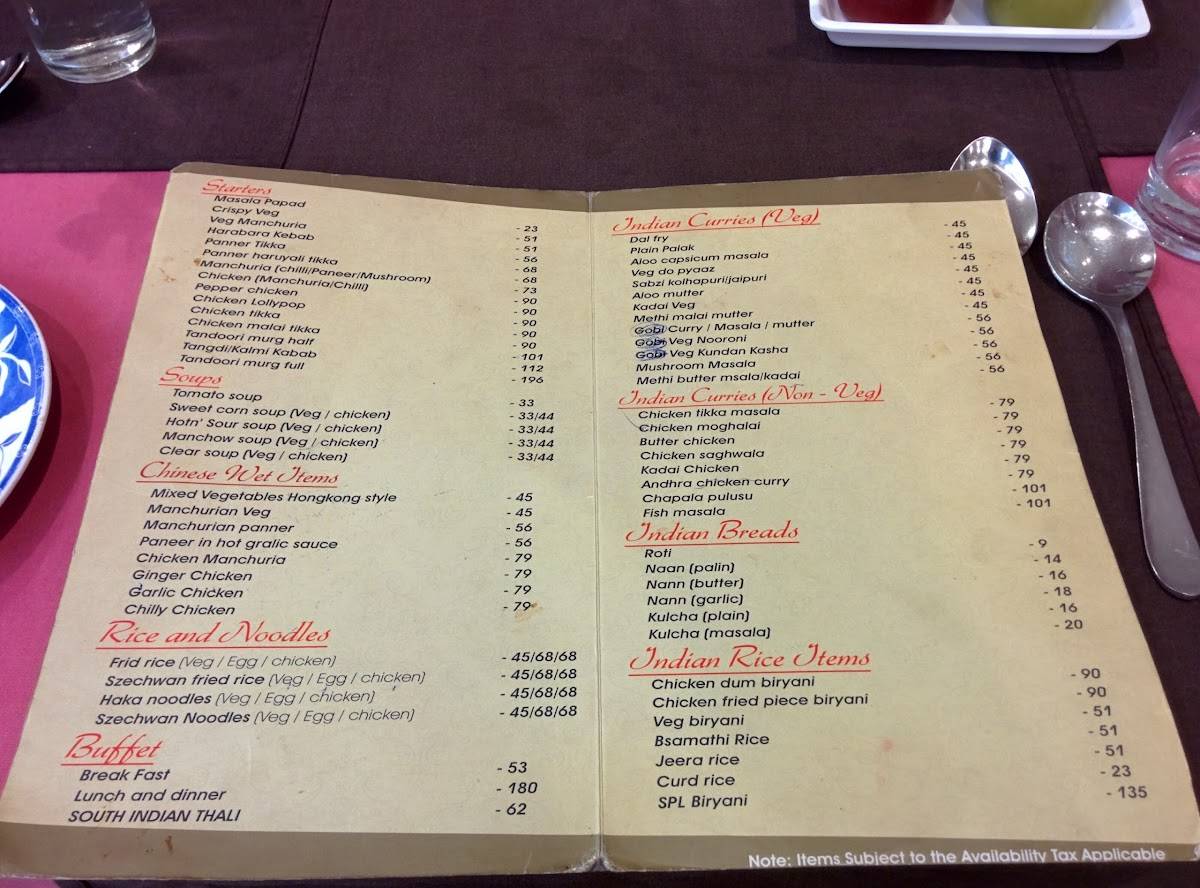 Starters
Masala Papad - 23
Crispy Veg - 51
Veg Manchuria - 51
Harabara Kebab - 56
Panner Tikka - 68
Panner haruyali tikka - 68
Manchuria (chilli/Paneer/Mushroom) - 73
Chicken (Manchuria/Chilli) - 90
Pepper chicken - 90
Chicken Lollypop - 90
Chicken tikka - 90
Chicken malai tikka - 90
Tandoori murg half - 101
Tangdi/Kalmi Kabab - 112
Tandoori murg full - 196
Soups
Tomato soup - 33
Sweet corn soup (Veg / chicken) - 33/44
Hotn' Sour soup (Veg / chicken) - 33/44
Manchow soup (Veg / chicken) - 33/44
Clear soup (Veg / chicken) - 33/44
Chinese Wet Items
Mixed Vegetables Hongkong style - 45
Manchurian Veg - 45
Manchurian panner - 56
Paneer in hot gralic sauce - 56
Chicken Manchuria - 79
Ginger Chicken - 79
Garlic Chicken - 79
Chilly Chicken - 79
Rice and Noodles
Frid rice (Veg / Egg / chicken) - 45/68/68
Szechwan fried rice (Veg / Egg / chicken) - 45/68/68
Haka noodles (Veg / Egg / chicken) - 45/68/68
Szechwan Noodles (Veg / Egg / chicken) - 45/68/68
Buffet
Break Fast - 53
Lunch and dinner - 180
SOUTH INDIAN THALI - 62
Indian Curries (Veg)
Dal fry - 45
Plain Palak - 45
Aloo capsicum masala - 45
Veg do pyaaz - 45
Sabzi kolhapuri/jaipuri - 45
Aloo mutter - 45
Kadai Veg - 45
Methi malai mutter - 45
Gobi Curry / Masala / mutter - 56
Gobi Veg Nooroni - 56
Gobi Veg Kundan Kasha - 56
Mushroom Masala - 56
Methi butter msala/kadai - 56
Indian Curries (Non - Veg)
Chicken tikka masala - 79
Chicken moghalai - 79
Butter chicken - 79
Chicken saghwala - 79
Kadai Chicken - 79
Andhra chicken curry - 79
Chapala pulusu - 101
Fish masala - 101
Indian Breads
Roti - 9
Naan (palin) - 14
Nann (butter) - 16
Nann (garlic) - 18
Kulcha (plain) - 16
Kulcha (masala) - 20
Indian Rice Items
Chicken dum biryani - 90
Chicken fried piece biryani - 90
Veg biryani - 51
Bsamathi Rice - 51
Jeera rice - 51
Curd rice - 23
SPL Biryani - 135
Note: Items Subject to the Availability Tax Applicable